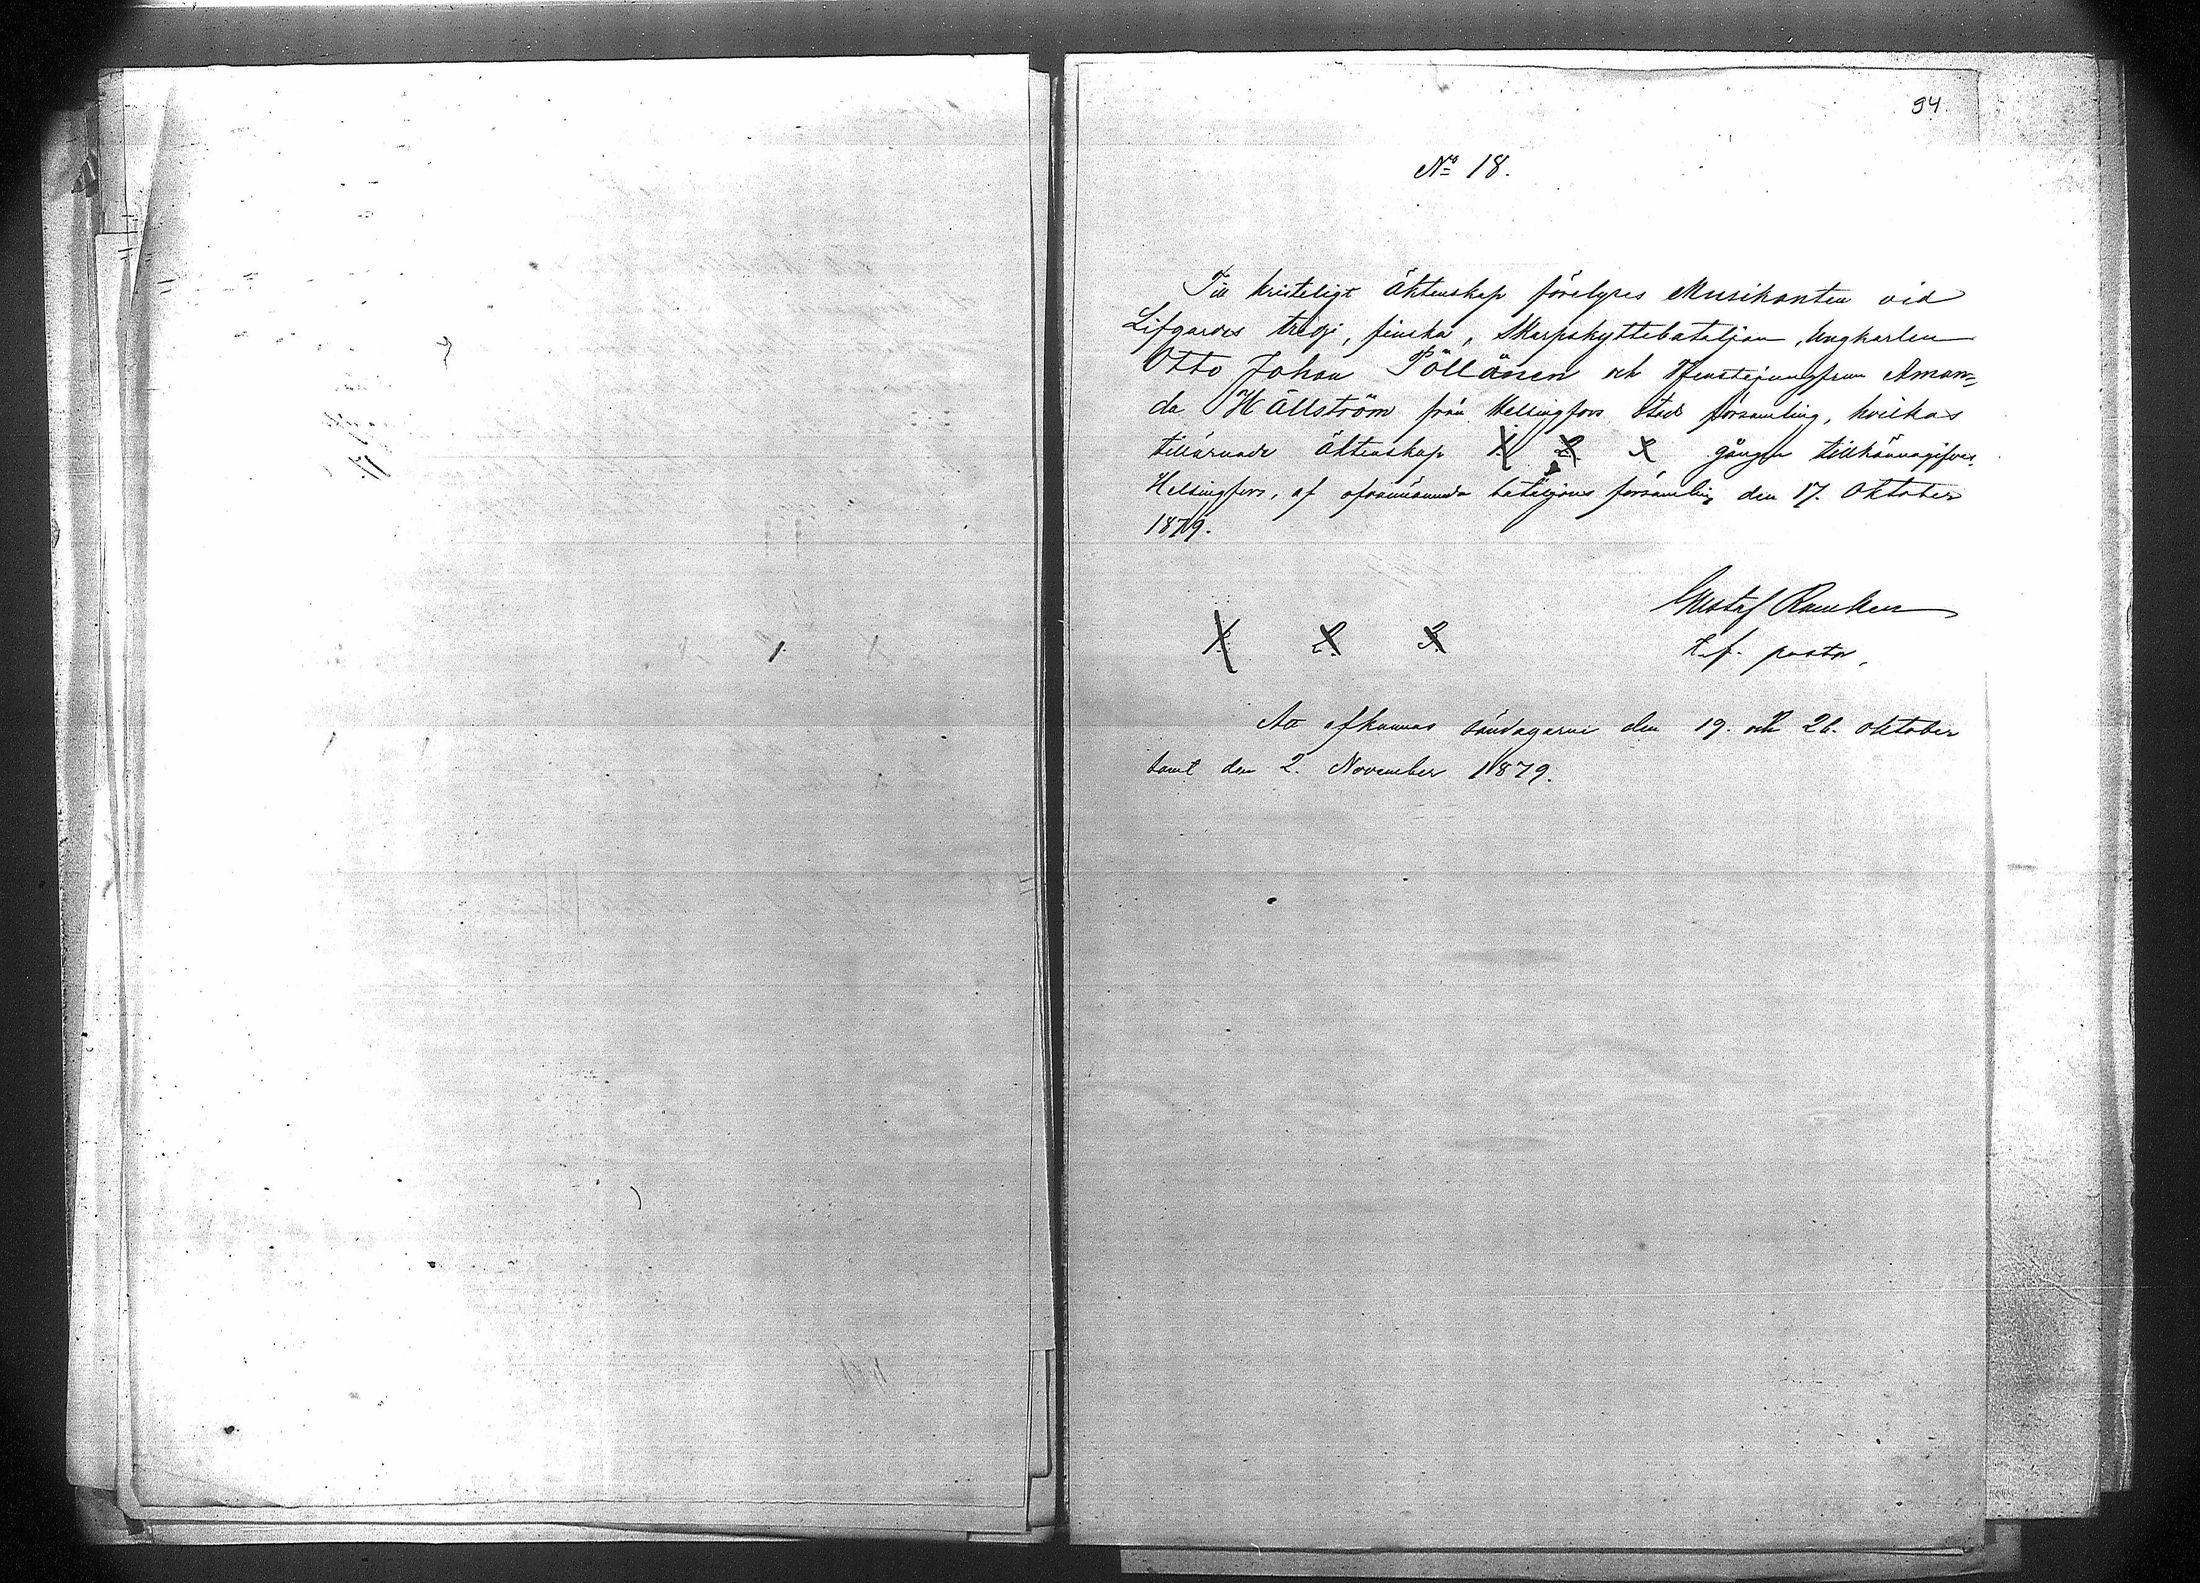 94.
No 18.
Till kristeligt äktenskap förelyses Musikanten vid
Lifgardes tredje, finska, Skarpskyttebataljon, Ungkarlen
Otto Johan Pöllänen och Tjenstejungfrun Aman=
da Hällström från Helsingfors stads församling, hvilkas
tillärnade äktenskap 1. 2. 3. gången tillkännagifves.
Helsingfors, af ofvannämnda bataljons församling den 17. Oktober
1879.
Gustaf Rancken
t.f. pastor.
1. 2. 3.
Att afkunnas söndagarne den 19. och 26. oktober
samt den 2. November 1879.